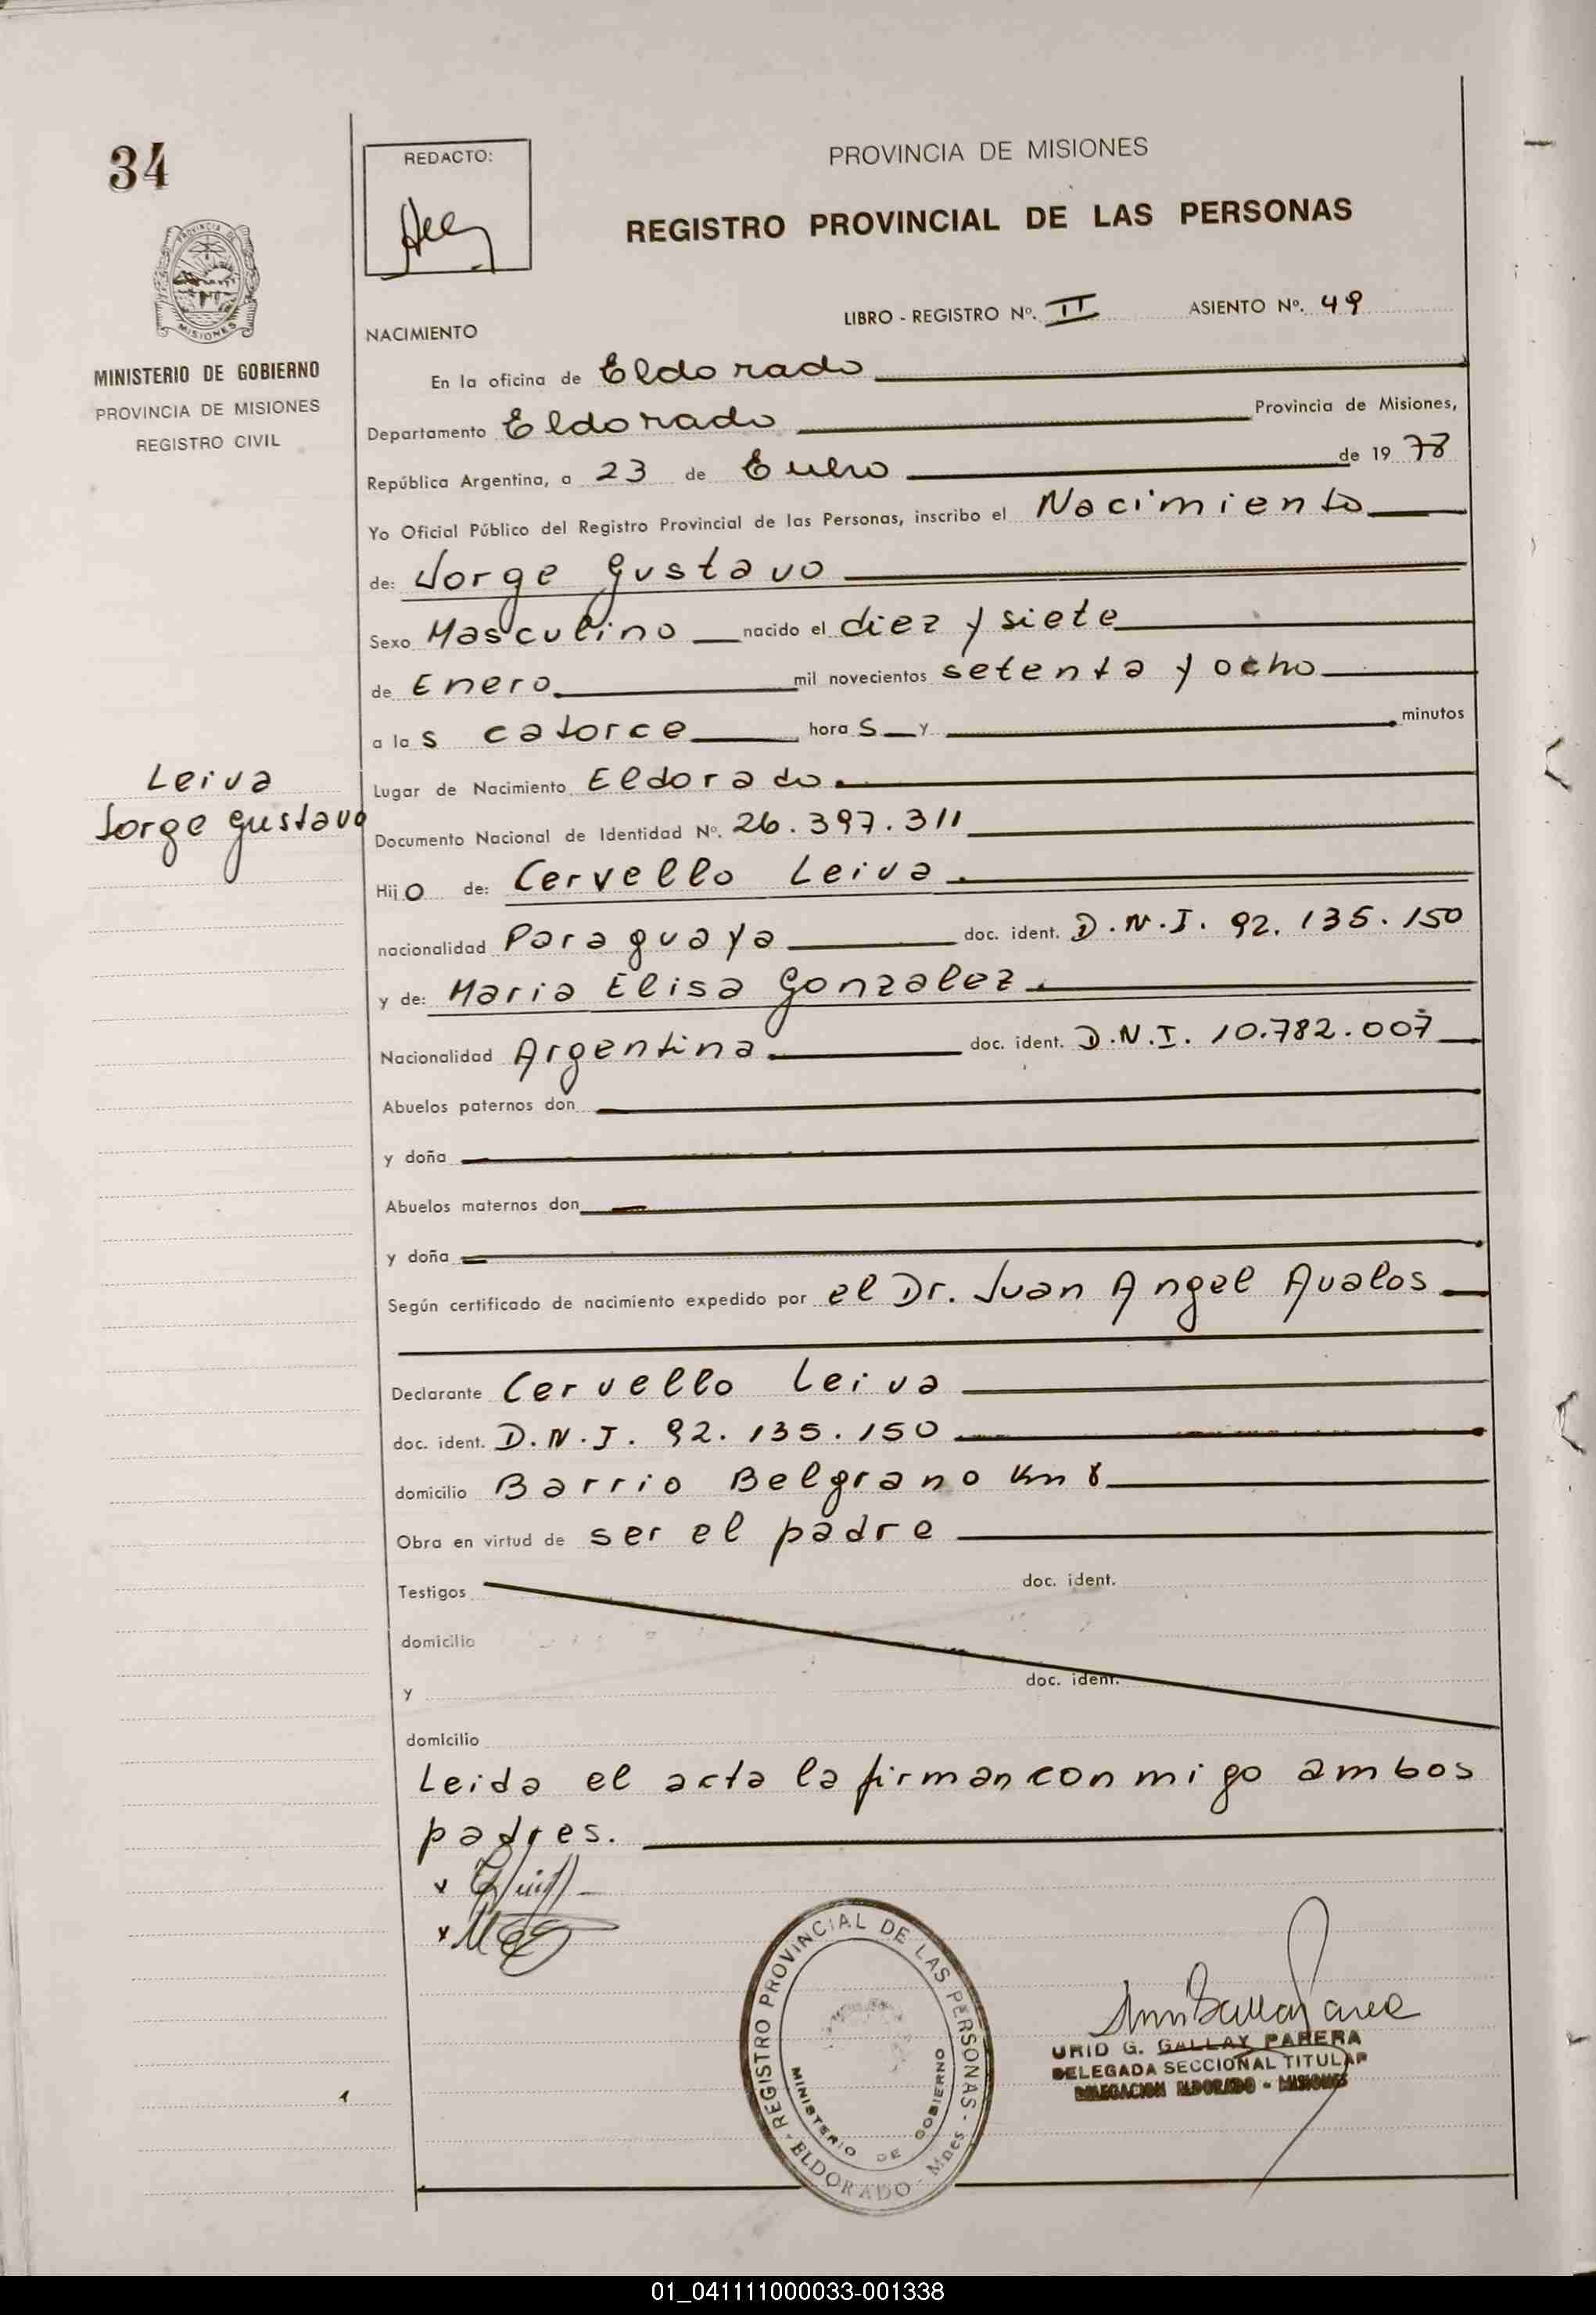 34
REDACTO:
PROVINCIA DE MISIONES
REGISTRO PROVINCIAL DE LAS PERSONAS
PROVINCIA DE
MISIONES
MINISTERIO DE GOBIERNO
PROVINCIA DE MISIONES
REGISTRO CIVIL
LIBRO - REGISTRO Nº. II ASIENTO Nº. 49
NACIMIENTO
En la oficina de Eldorado
Departamento Eldorado Provincia de Misiones,
República Argentina, a 23 de Enero de 1978
Yo Oficial Público del Registro Provincial de las Personas, inscribo el Nacimiento
de: Jorge Gustavo
Sexo Masculino nacido el diez y siete
de Enero mil novecientos setenta y ocho
a las catorce horas y minutos
Leiva
Jorge Gustavo
Lugar de Nacimiento Eldorado
Documento Nacional de Identidad Nº. 26.397.311
Hijo de: Cervello Leiva
nacionalidad Paraguaya doc. ident. D.N.I. 92.135.150
y de: Maria Elisa Gonzalez
Nacionalidad Argentina doc. ident. D.N.I. 10.782.007
Abuelos paternos don
y doña
Abuelos maternos don
y doña
Según certificado de nacimiento expedido por el Dr. Juan Angel Avalos
Declarante Cervello Leiva
doc. ident. D.N.I. 92.135.150
domicilio Barrio Belgrano Km 8
Obra en virtud de ser el padre
Testigos doc. ident.
domicilio
y doc. ident.
domicilio
Leida el acta la firman conmigo ambos
padres.
REGISTRO PROVINCIAL DE LAS PERSONAS - ELDORADO - Mnes
MINISTERIO DE GOBIERNO
URID G. GALLAY PARERA
DELEGADA SECCIONAL TITULAR
DELEGACION ELDORADO - MISIONES
01_041111000033-001338